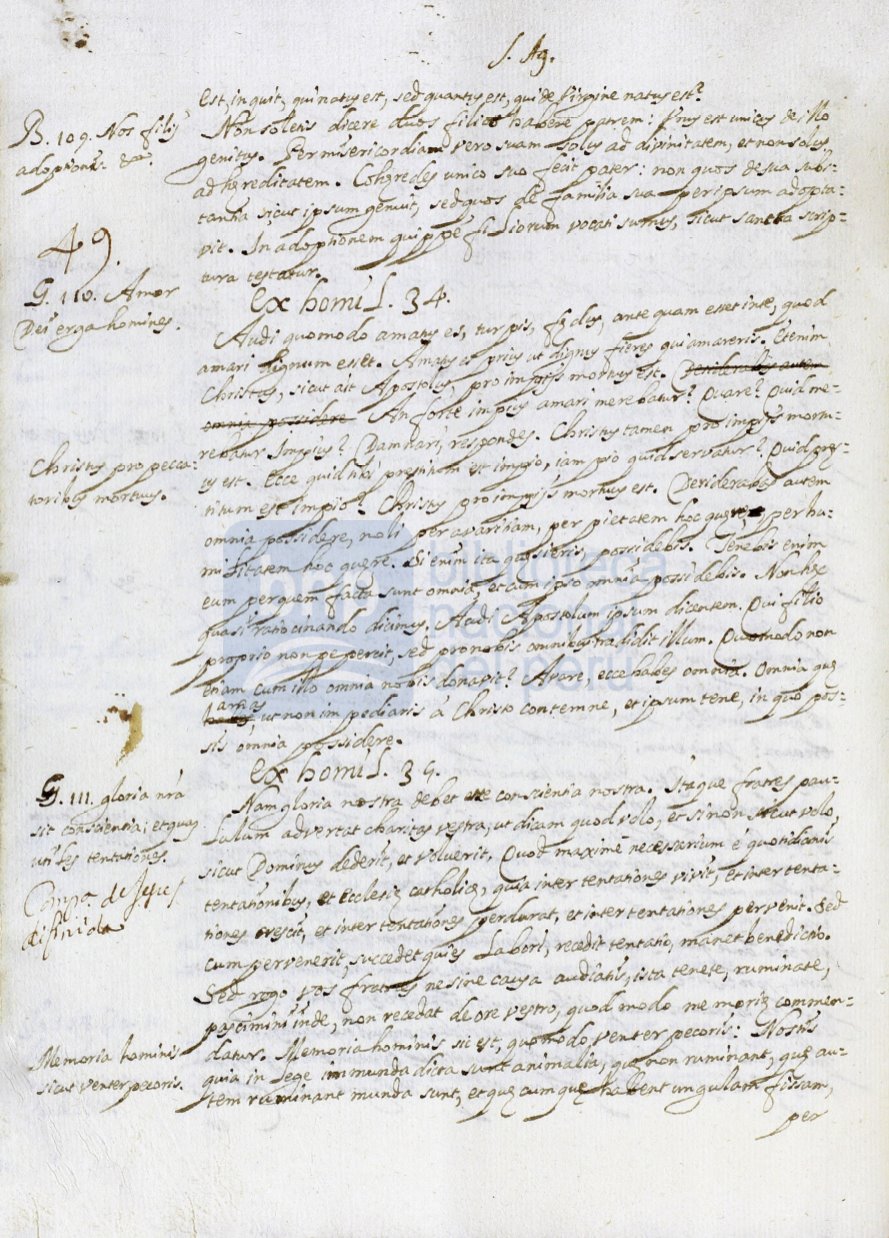 S. Ag.
est, inquit, qui natus est, sed quantus est, qui de Virgine natus est?
B. 109. Nos filij
adoptionis. &c.
Non soletis dicere duos filios habere patrem: Unus est unicus de illo
genitus. Per misericordiam vero suam solus ad divinitatem, et non solus
ad hęreditatem. Cohęredes unico suo fecit pater: non quos de sua subs-
tantia sicut ipsum genuit, sed quos de familia sua per ipsum adopta-
vit. In adoptionem quippe filiorum vocati sumus, sicut sancta scrip-
tura testatur.
49.
G. 110. Amor
Dei erga homines.
Ex homil. 34.
Audi quomodo amatus es, turpis, fędus, ante quam esset in te, quod
amari dignum esset. Amatus es prius ut dignus fieres qui amareris. Etenim
Christus, sicut ait Apostolus, pro impijs mortuus est. Desiderabas autem
omnia possidere. An forte impius amari merebatur? Quare? Quid me-
rebatur impius? Damnari, respondes. Christus tamen pro impijs mortu-
us est. Ecce quid tibi prestitum est impio, iam pio quid servatur? Quid pręs-
titum est impio? Christus pro impijs mortuus est. Desiderabas autem
Christus pro pecca-
toribus mortuus.
omnia possidere, noli per avaritiam, per pietatem hoc quęre, per hu-
militatem hoc quęre. Si enim ita quęsieris, possidebis. Tenebis enim
eum per quem facta sunt omnia, et cum ipso omnia possidebis. Non hęc
quasi ratiocinando dicimus, Audi Apostolum ipsum dicentem. Qui filio
proprio non pepercit, sed pro nobis omnibus tradidit illum. Quomodo non
etiam cum illo omnia nobis donavit? Avare, ecce habes omnia. Omnia quę
amas
ut non impediaris à Christo contemne, et ipsum tene, in quo pos-
sis omnia possidere.
Ex homil. 35.
G. 111. gloria nrã
sit conscientia; et quam
utiles tentationes.
Compa. de Jesus
difinida
Nam gloria nostra debet esse conscientia nostra. Itaque fratres pau-
lulum advertat charitas vestra, ut dicam quod volo, et si non sicut volo,
sicut Dominus dederit, et voluerit. Quod maximè necessarium é quotidianis
tentationibus, et Ecclesię catholicę, quia inter tentationes vivit, et inter tenta-
tiones crescit, et inter tentationes perdurat, et inter tentationes pervenit. Sed
cum pervenerit, succedet quies labori, recedit tentatio, manet benedictio.
Sed rogo vos fratres ne sine causa audiatis, ista tenete, ruminate,
pascimini inde, non recedat de ore vestro, quod modo memorię commen-
datur. Memoria hominis sic est, quomodo venter pecoris: Nostis
quia in lege immunda dicta sunt animalia, quę non ruminant, quę au-
tem ruminant munda sunt, et quęcumque habent ungulam fissam,
Memoria hominis
sicut venter pecoris.
per
biblioteca
nacional
del perú